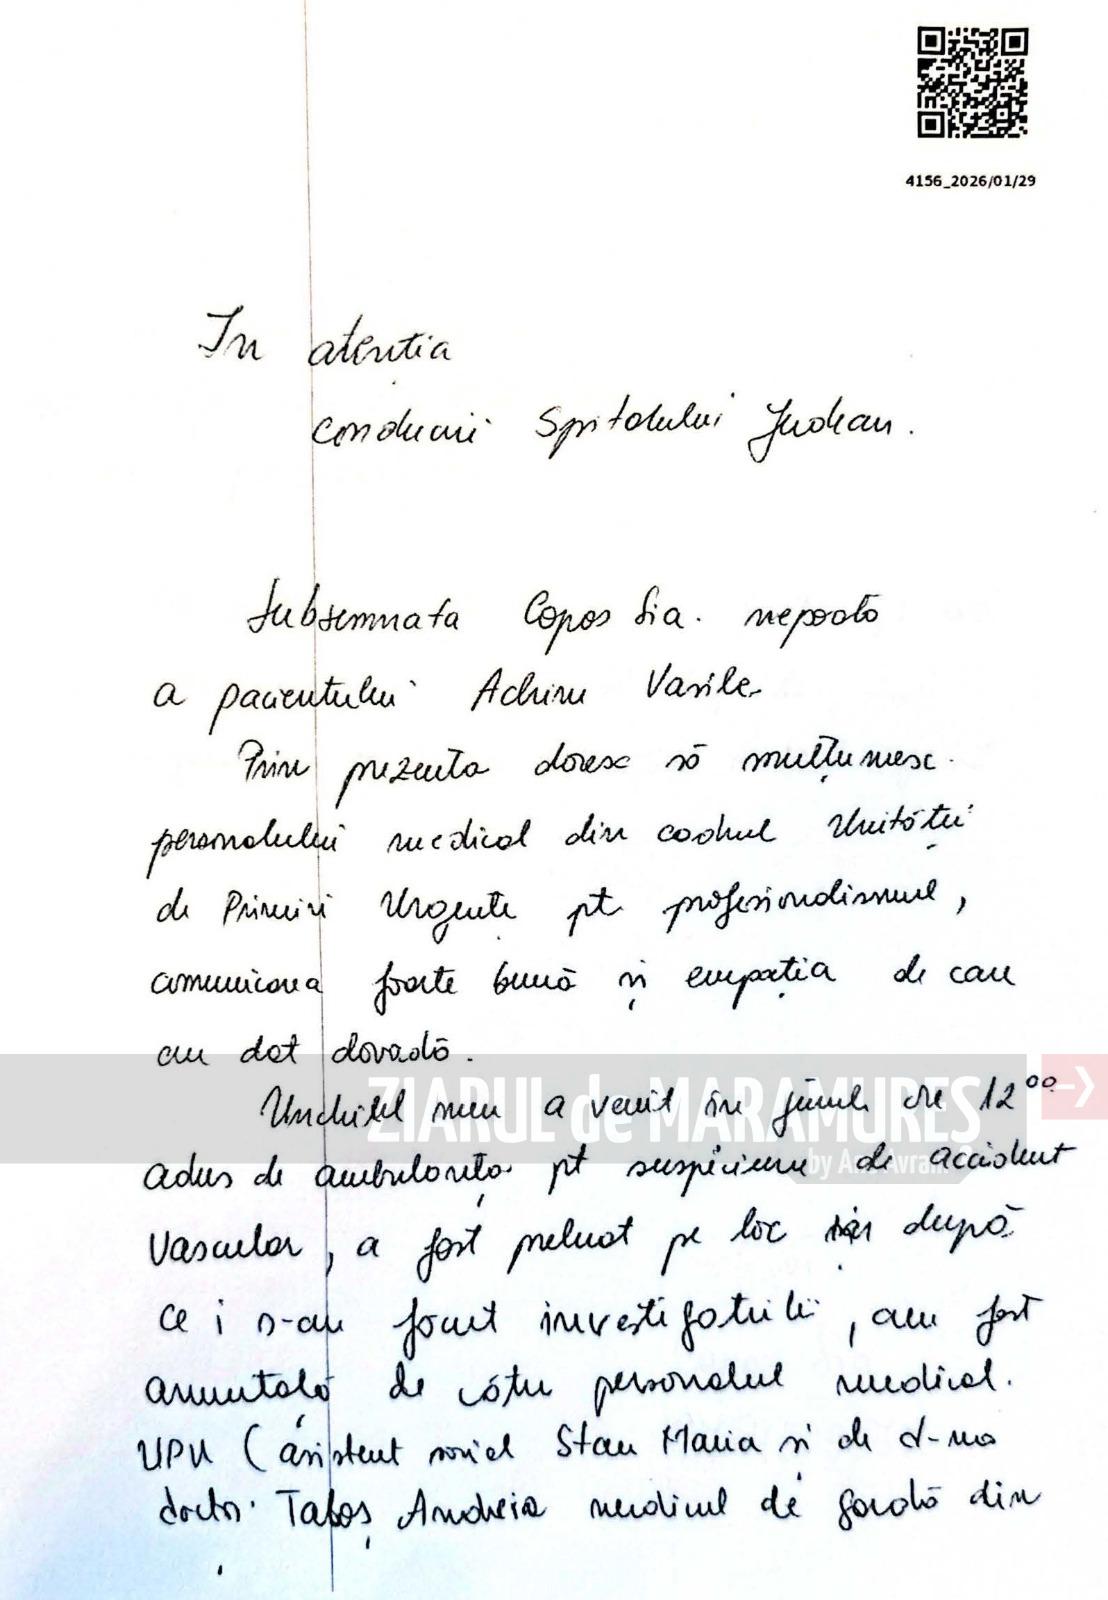 4156_2026/01/29
In atenția
conducerii Spitalului Județean.
Subsemnata Copos Lia. nepoată
a pacientului Vasile
Prin prezenta doresc să mulțumesc
personalului medical din cadrul Unității
de Primiri Urgențe pt profesionalismul,
comunicarea foarte bună și empatia de care
au dat dovadă.
Unchiul meu a venit în jurul ore 12⁰⁰
ZIARUL de MARAMUREȘ
adus de ambulanță pt suspiciune de accident
by Ana Avram
vascular, a fost preluat pe loc iar după
ce i s-au făcut investigațiile, am fost
anunțată de către personalul medical.
UPU (asistent social Stan Maria și de d-na
doctor Taloș Andreia medicul de gardă din